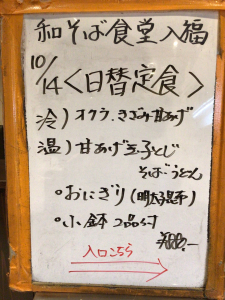 和そば食堂 入福
10/14 <日替定食>
冷) オクラ、きざみ甘あげ
温) 甘あげ玉子とじ
そば・うどん
◦おにぎり(明太昆布)
◦小鉢 2品付
入口こちら